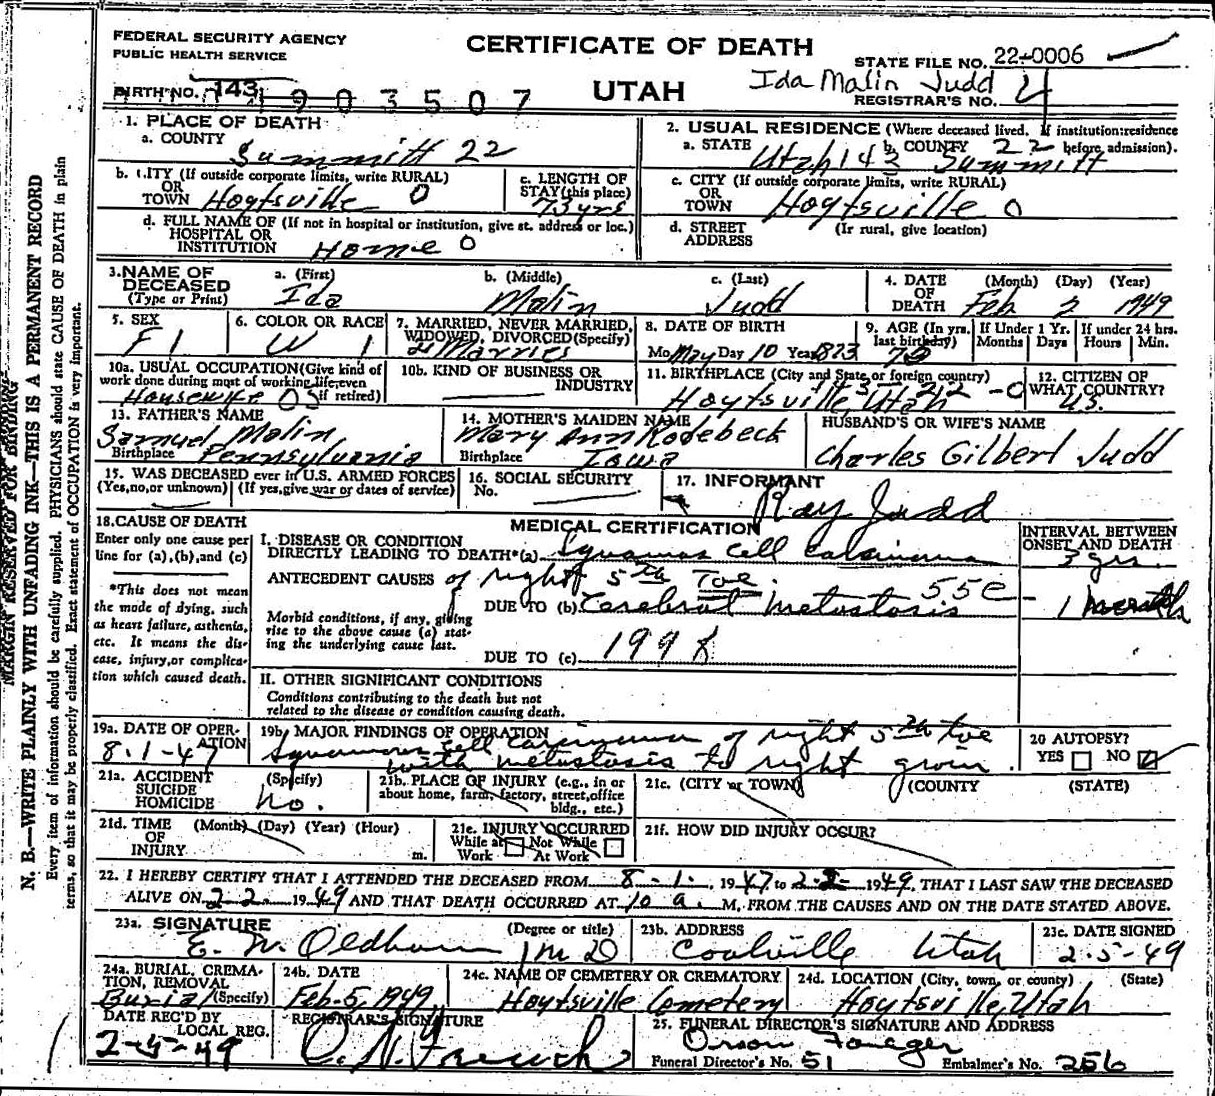 FEDERAL SECURITY AGENCY
PUBLIC HEALTH SERVICE
CERTIFICATE OF DEATH
UTAH
STATE FILE NO. 22-0006
Ida Malin Judd
REGISTRAR'S NO. 4
BIRTH NO. 143
1903507
1. PLACE OF DEATH
a. COUNTY
Summitt 22
b. CITY (If outside corporate limits, write RURAL)
OR
TOWN Hoytsville 0
c. LENGTH OF
STAY (this place)
73 yrs
d. FULL NAME OF (If not in hospital or institution, give st. address or loc.)
HOSPITAL OR
INSTITUTION Home 0
2. USUAL RESIDENCE (Where deceased lived. If institution: residence
before admission).
a. STATE Utah 143
b. COUNTY 22 Summitt
c. CITY (If outside corporate limits, write RURAL)
OR
TOWN Hoytsville 0
d. STREET (Ir rural, give location)
ADDRESS
3. NAME OF
DECEASED
(Type or Print)
a. (First)
Ida
b. (Middle)
Malin
c. (Last)
Judd
4. DATE
OF
DEATH
(Month) (Day) (Year)
Feb 2 1949
5. SEX
F 1
6. COLOR OR RACE
W 1
7. MARRIED, NEVER MARRIED,
WIDOWED, DIVORCED (Specify)
Married
8. DATE OF BIRTH
Mo. May Day 10 Year
9. AGE (In yrs.
last birthday)
If Under 1 Yr.
Months Days
If under 24 hrs.
Hours Min.
10a. USUAL OCCUPATION (Give kind of
work done during most of working life, even
if retired)
Housewife
10b. KIND OF BUSINESS OR
INDUSTRY
11. BIRTHPLACE (City and State or foreign country)
Hoytsville, Utah
12. CITIZEN OF
WHAT COUNTRY?
U.S.
13. FATHER'S NAME
Samuel Malin
Birthplace Pennsylvania
14. MOTHER'S MAIDEN NAME
Mary Ann Rodebeck
Birthplace Iowa
HUSBAND'S OR WIFE'S NAME
Charles Gilbert Judd
15. WAS DECEASED ever in U.S. ARMED FORCES
(Yes, no, or unknown) (If yes, give war or dates of service)
16. SOCIAL SECURITY
No.
17. INFORMANT
Ray Judd
18. CAUSE OF DEATH
Enter only one cause per
line for (a), (b), and (c)
*This does not mean
the mode of dying, such
as heart failure, asthenia,
etc. It means the dis-
ease, injury, or complica-
tion which caused death.
MEDICAL CERTIFICATION
I. DISEASE OR CONDITION
DIRECTLY LEADING TO DEATH* (a) Squamous cell carcinoma
ANTECEDENT CAUSES of right 5th Toe.
DUE TO (b) Cerebral metastosis
Morbid conditions, if any, giving
rise to the above cause (a) stat-
ing the underlying cause last.
DUE TO (c)
INTERVAL BETWEEN
ONSET AND DEATH
3 yrs.
1
II. OTHER SIGNIFICANT CONDITIONS
Conditions contributing to the death but not
related to the disease or condition causing death.
19a. DATE OF OPER-
ATION
8-1-47
19b. MAJOR FINDINGS OF OPERATION
Squamous cell carcinoma of right 5th toe
with metastosis to right groin.
20 AUTOPSY?
YES NO
21a. ACCIDENT
SUICIDE
HOMICIDE
(Specify)
no.
21b. PLACE OF INJURY (e.g., in or
about home, farm, factory, street, office
bldg., etc.)
21c. (CITY or TOWN) (COUNTY) (STATE)
21d. TIME
OF
INJURY
(Month) (Day) (Year) (Hour)
m.
21e. INJURY OCCURRED
While at Not While
Work At Work
21f. HOW DID INJURY OCCUR?
22. I HEREBY CERTIFY THAT I ATTENDED THE DECEASED FROM 8-1-, 1947 to 2-2- 1949, THAT I LAST SAW THE DECEASED
ALIVE ON 2-2- 1949 AND THAT DEATH OCCURRED AT 10 a. M, FROM THE CAUSES AND ON THE DATE STATED ABOVE.
23a. SIGNATURE (Degree or title)
E. W. Oldham MD
23b. ADDRESS
Coalville Utah
23c. DATE SIGNED
2-5-49
24a. BURIAL, CREMA-
TION, REMOVAL
Burial (Specify)
24b. DATE
Feb-5, 1949
24c. NAME OF CEMETERY OR CREMATORY
Hoytsville Cemetery
24d. LOCATION (City, town, or county) (State)
Hoytsville, Utah
DATE REC'D BY
LOCAL REG.
2-5-49
REGISTRAR'S SIGNATURE
O. N. French
25. FUNERAL DIRECTOR'S SIGNATURE AND ADDRESS
Funeral Director's No. 51 Embalmer's No. 256
MARGIN RESERVED FOR BINDING
N. B.—WRITE PLAINLY WITH UNFADING INK—THIS IS A PERMANENT RECORD
Every item of information should be carefully supplied. PHYSICIANS should state CAUSE OF DEATH in plain
terms, so that it may be properly classified. Exact statement of OCCUPATION is very important.